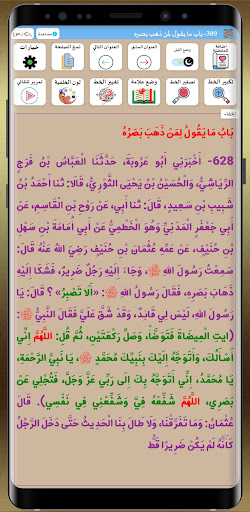 389-باب ما يقول لمن ذهب بصره
مساعدة
رجوع
إضافة للمفضلة
وضع الليل
العنوان السابق
العنوان التالي
نسخ الصفحة
خيارات
تكبير الخط
تصغير الخط
وضع علامة
تغيير الخط
لون الخلفية
تمرير تلقائي
إخفاء
بَابُ مَا يَقُولُ لِمَنْ ذَهَبَ بَصَرُهُ
628- أَخْبَرَنِي أَبُو عَرُوبَةَ، حَدَّثَنَا الْعَبَّاسُ بْنُ فَرَجٍ
الرِّيَاشِيُّ، وَالْحُسَيْنُ بْنُ يَحْيَى الثَّوْرِيُّ، قَالَا: ثنا أَحْمَدُ بْنُ
شَبِيبِ بْنِ سَعِيدٍ، قَالَ: ثنا أَبِي، عَنْ رَوْحِ بْنِ الْقَاسِمِ، عَنْ
أَبِي جَعْفَرٍ الْمَدَنِيِّ وَهُوَ الْخَطْمِيُّ عَنْ أَبِي أُمَامَةَ بْنِ سَهْلِ
بْنِ حُنَيْفٍ، عَنْ عَمِّهِ عُثْمَانَ بْنِ حُنَيْفٍ رَضِيَ اللَّهُ عَنْهُ قَالَ:
سَمِعْتُ رَسُولَ اللَّهِ ﷺ، وَجَاءَ إِلَيْهِ رَجُلٌ ضَرِيرٌ، فَشَكَا إِلَيْهِ
ذَهَابَ بَصَرِهِ، فَقَالَ رَسُولُ اللَّهِ ﷺ: «أَلَا تَصْبِرُ» ؟ قَالَ: يَا
رَسُولَ اللَّهِ، لَيْسَ لِي قَائِدٌ، وَقَدْ شَقَّ عَلَيَّ فَقَالَ النَّبِيُّ ﷺ:
(ايتِ الْمِيضَأَةَ فَتَوَضَّأْ، وَصَلِّ رَكْعَتَيْنِ، ثُمَّ قُلِ: اللَّهُمَّ إِنِّي
أَسْأَلُكَ، وَأَتَوَجَّهُ إِلَيْكَ بِنَبِيِّكَ مُحَمَّدٍ ﷺ، يَا نَبِيَّ الرَّحْمَةِ،
يَا مُحَمَّدُ، إِنِّي أَتَوَجَّهُ بِكَ إِلَى رَبِّي عَزَّ وَجَلَّ، فَتُجْلِي عَنْ
بَصَرِي، اللَّهُمَّ شَفِّعْهُ فِيَّ وَشَفِّعْنِي فِي نَفْسِي). قَالَ
عُثْمَانُ: وَمَا تَفَرَّقْنَا، وَلَا طَالَ بِنَا الْحَدِيثُ حَتَّى دَخَلَ الرَّجُلُ
كَأَنَّهُ لَمْ يَكُنْ ضَرِيرًا قَطُّ